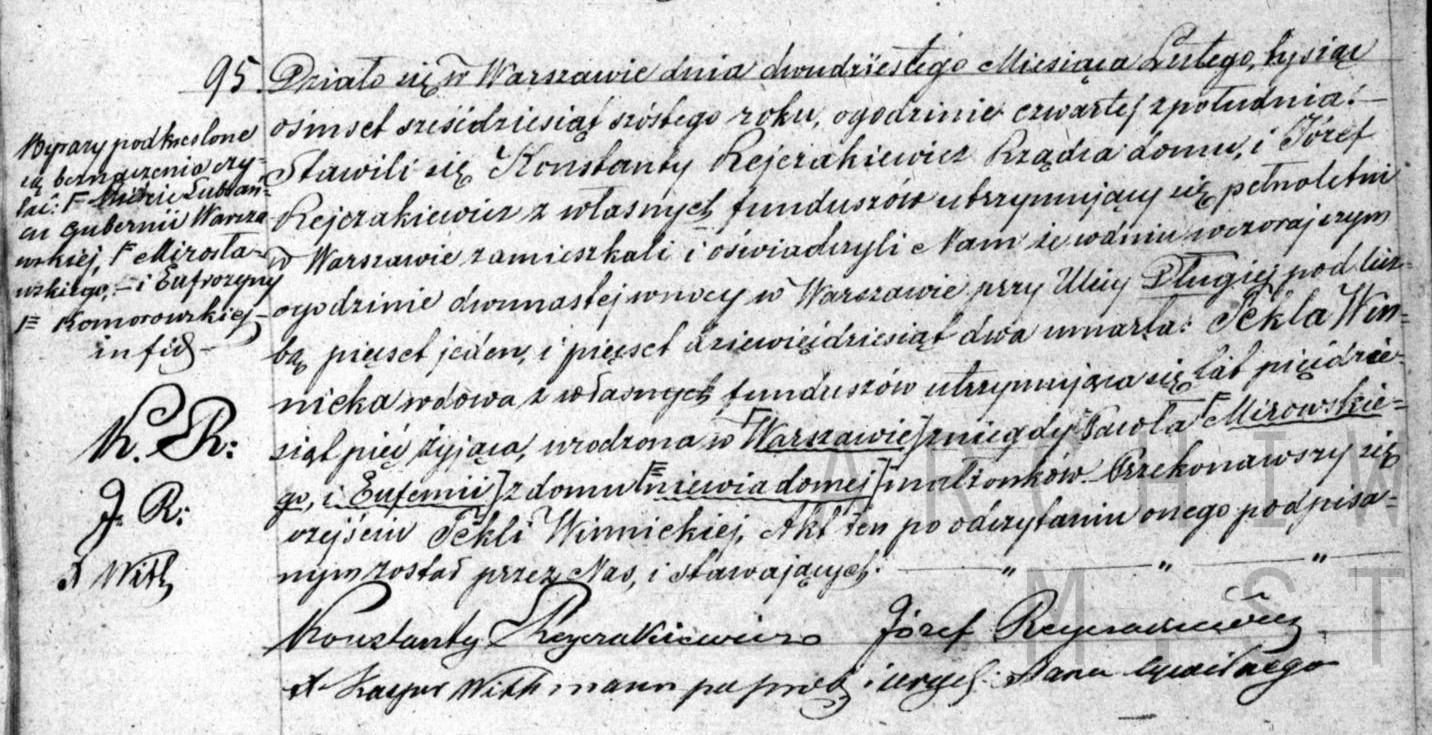 95. Działo się w Warszawie dnia dwudziestego Miesiąca Lutego, tysiąc
ośmset sześćdziesiąt szóstego roku, ogodzinie czwartej zpołudnia.—
Stawili się Konstanty Rejczakiewicz Rządca domu, i Józef
Rejczakiewicz z własnych funduszów utrzymujący się pełnoletni
w Warszawie zamieszkali i oświadczyli Nam że wdniu wczorajszym
ogodzinie dwunastej wnocy w Warszawie przy Ulicy Długiej pod licz-
bą pięset jeden, i pięset dziewięćdziesiąt dwa umarła: Tekla Win-
nicka wdowa z własnych funduszów utrzymująca się lat pięćdzie-
siąt pięć żyjąca, urodzona w Warszawie] zniegdy Pawła Mirowskie-
go, i Eufemii] z domu [niewiadomej] małżonków. Przekonawszy się
ozejściu Tekli Winnickiej, Akt ten po odczytaniu onego podpisa-
nym został przez Nas, i stawających. — „ — „ — „ —
Wyrazy podkreslone
są beznaczenia czy-
tać: Mieście Lubran-
cu Gubernii Warsza
wskiej, Mirosła-
wskiego, — i Eufrozyny
Komorowskiej —
K. R:
J. R:
X With
Konstanty Rejczakiewicz Józef Rejczakiewicz
X Kasper Withmann Stanu Cywilnego
ARCHIW
M ST